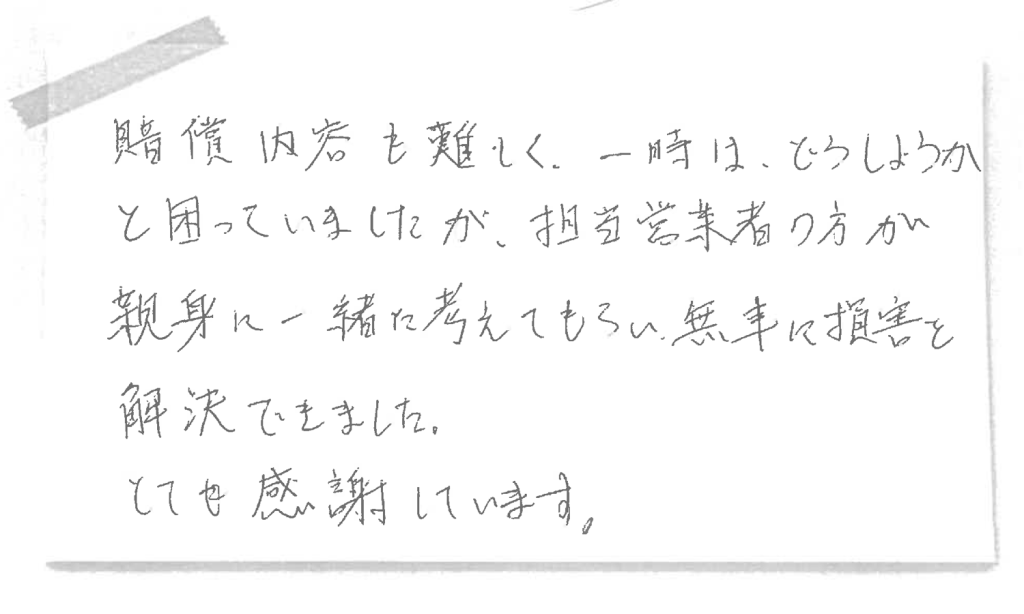 賠償内容も難しく、一時は、どうしようか
と困っていましたが、担当営業者の方が
親身に一緒に考えてもらい、無事に損害を
解決できました。
とても感謝しています。